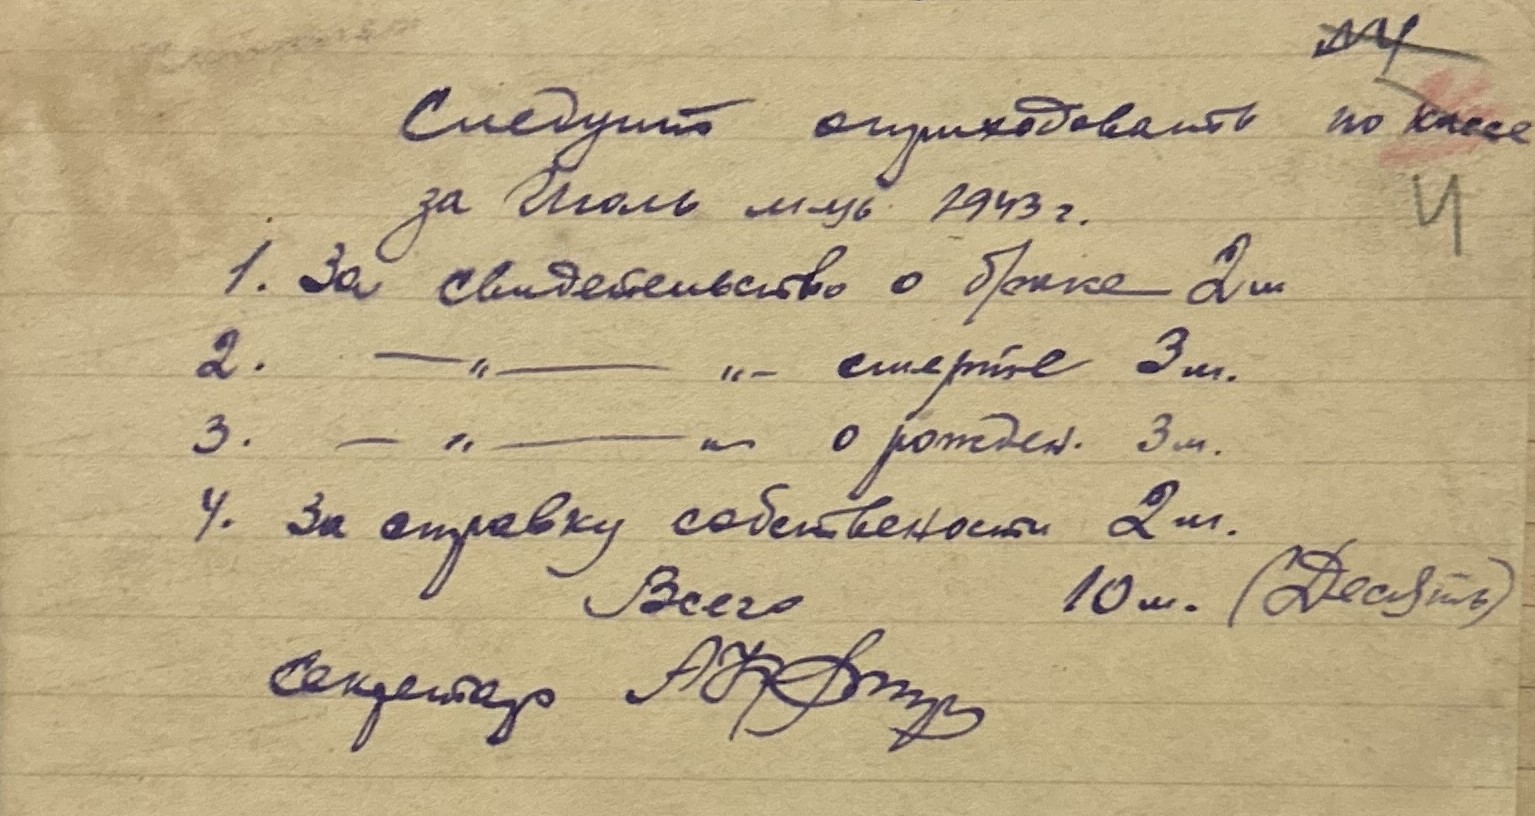 Следует оприходовать по кассе
за Июль м-ць 1943 г.
1. За свидетельство о браке 2 м
2. — „ — „ - смерте 3 м.
3. — „ — „ - о рожден. 3 м.
4. За справку собствености 2 м.
Всего 10 м. (Десять)
Секретарь